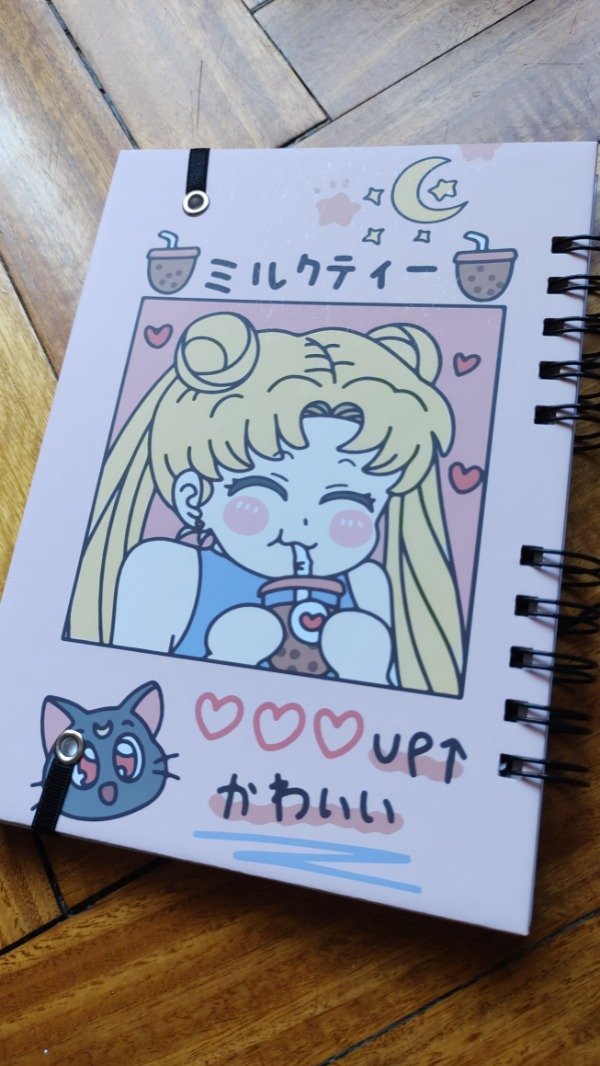 ミルクティー
UP↑
かわいい